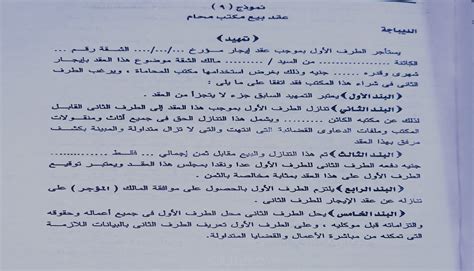 نموذج ( ٩ )
عقد بيع مكتب محام
الديباجة
﴿ تمهيد ﴾
يستأجر الطرف الأول بموجب عقد إيجار مؤرخ .../.../... الشقة رقم ...
الكائنة .......... من السيد / ......... مالك الشقة موضوع هذا العقد بإيجار
شهرى وقدره ...... جنيه وذلك بغرض استخدامها مكتب للمحاماة ، ويرغب الطرف
الثانى فى شراء هذا المكتب فقد اتفقا على ما يلى :
﴿ البند الأول ﴾ يعتبر التمهيد السابق جزء لا يتجزأ من العقد .
﴿ البند الثانى ﴾ تنازل الطرف الأول بموجب هذا العقد إلى الطرف الثانى القابل
لذلك عن مكتبه الكائن .......... ويشمل هذا التنازل الحق فى جميع أثاث ومنقولات
المكتب وملفات الدعاوى القضائية التى انتهت والتى لا تزال متداولة والمبينة بكشف
مرفق بهذا العقد
﴿ البند الثالث ﴾ تم هذا التنازل والبيع مقابل ثمن إجمالى .. فقط ..........
جنيه دفعه الطرف الثانى للطرف الأول عدا ونقدا بمجلس هذا العقد ويعتبر توقيع
الطرف الأول على هذا العقد بمثابة مخالصة بالثمن .
﴿ البند الرابع ﴾ يلتزم الطرف الأول بالحصول على موافقة المالك ( المؤجر ) على
تنازله عن عقد الإيجار للطرف الثانى .
﴿ البند الخامس ﴾ يحل الطرف الثانى محل الطرف الأول فى جميع أعماله وحقوقه
والتزاماته قبل موكليه ، وعلى الطرف الأول تعريف الطرف الثانى بالبيانات اللازمة
التى تمكنه من مباشرة الأعمال والقضايا المتداولة.